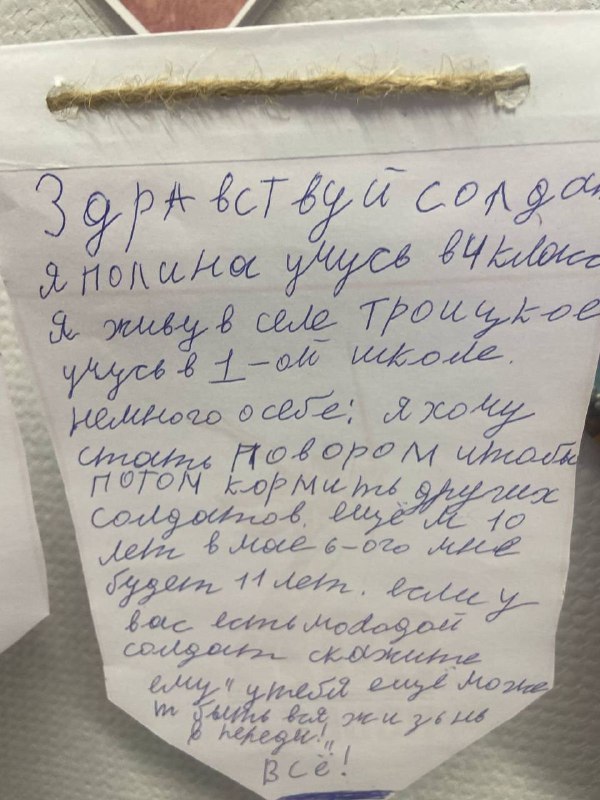 Здравствуй солда
я полина учусь в 4 класс
я живу в селе Троицкое
учусь в 1-ой школе.
немного о себе: я хочу
стать повором чтобы
потом кормить других
солдатов. ещё м 10
лет в мае 6-ого мне
будет 11 лет. если у
вас есть молодой
солдат скажите
ему "у тебя ещё може
т быть вся жизьнь
в переди!"
Всё!